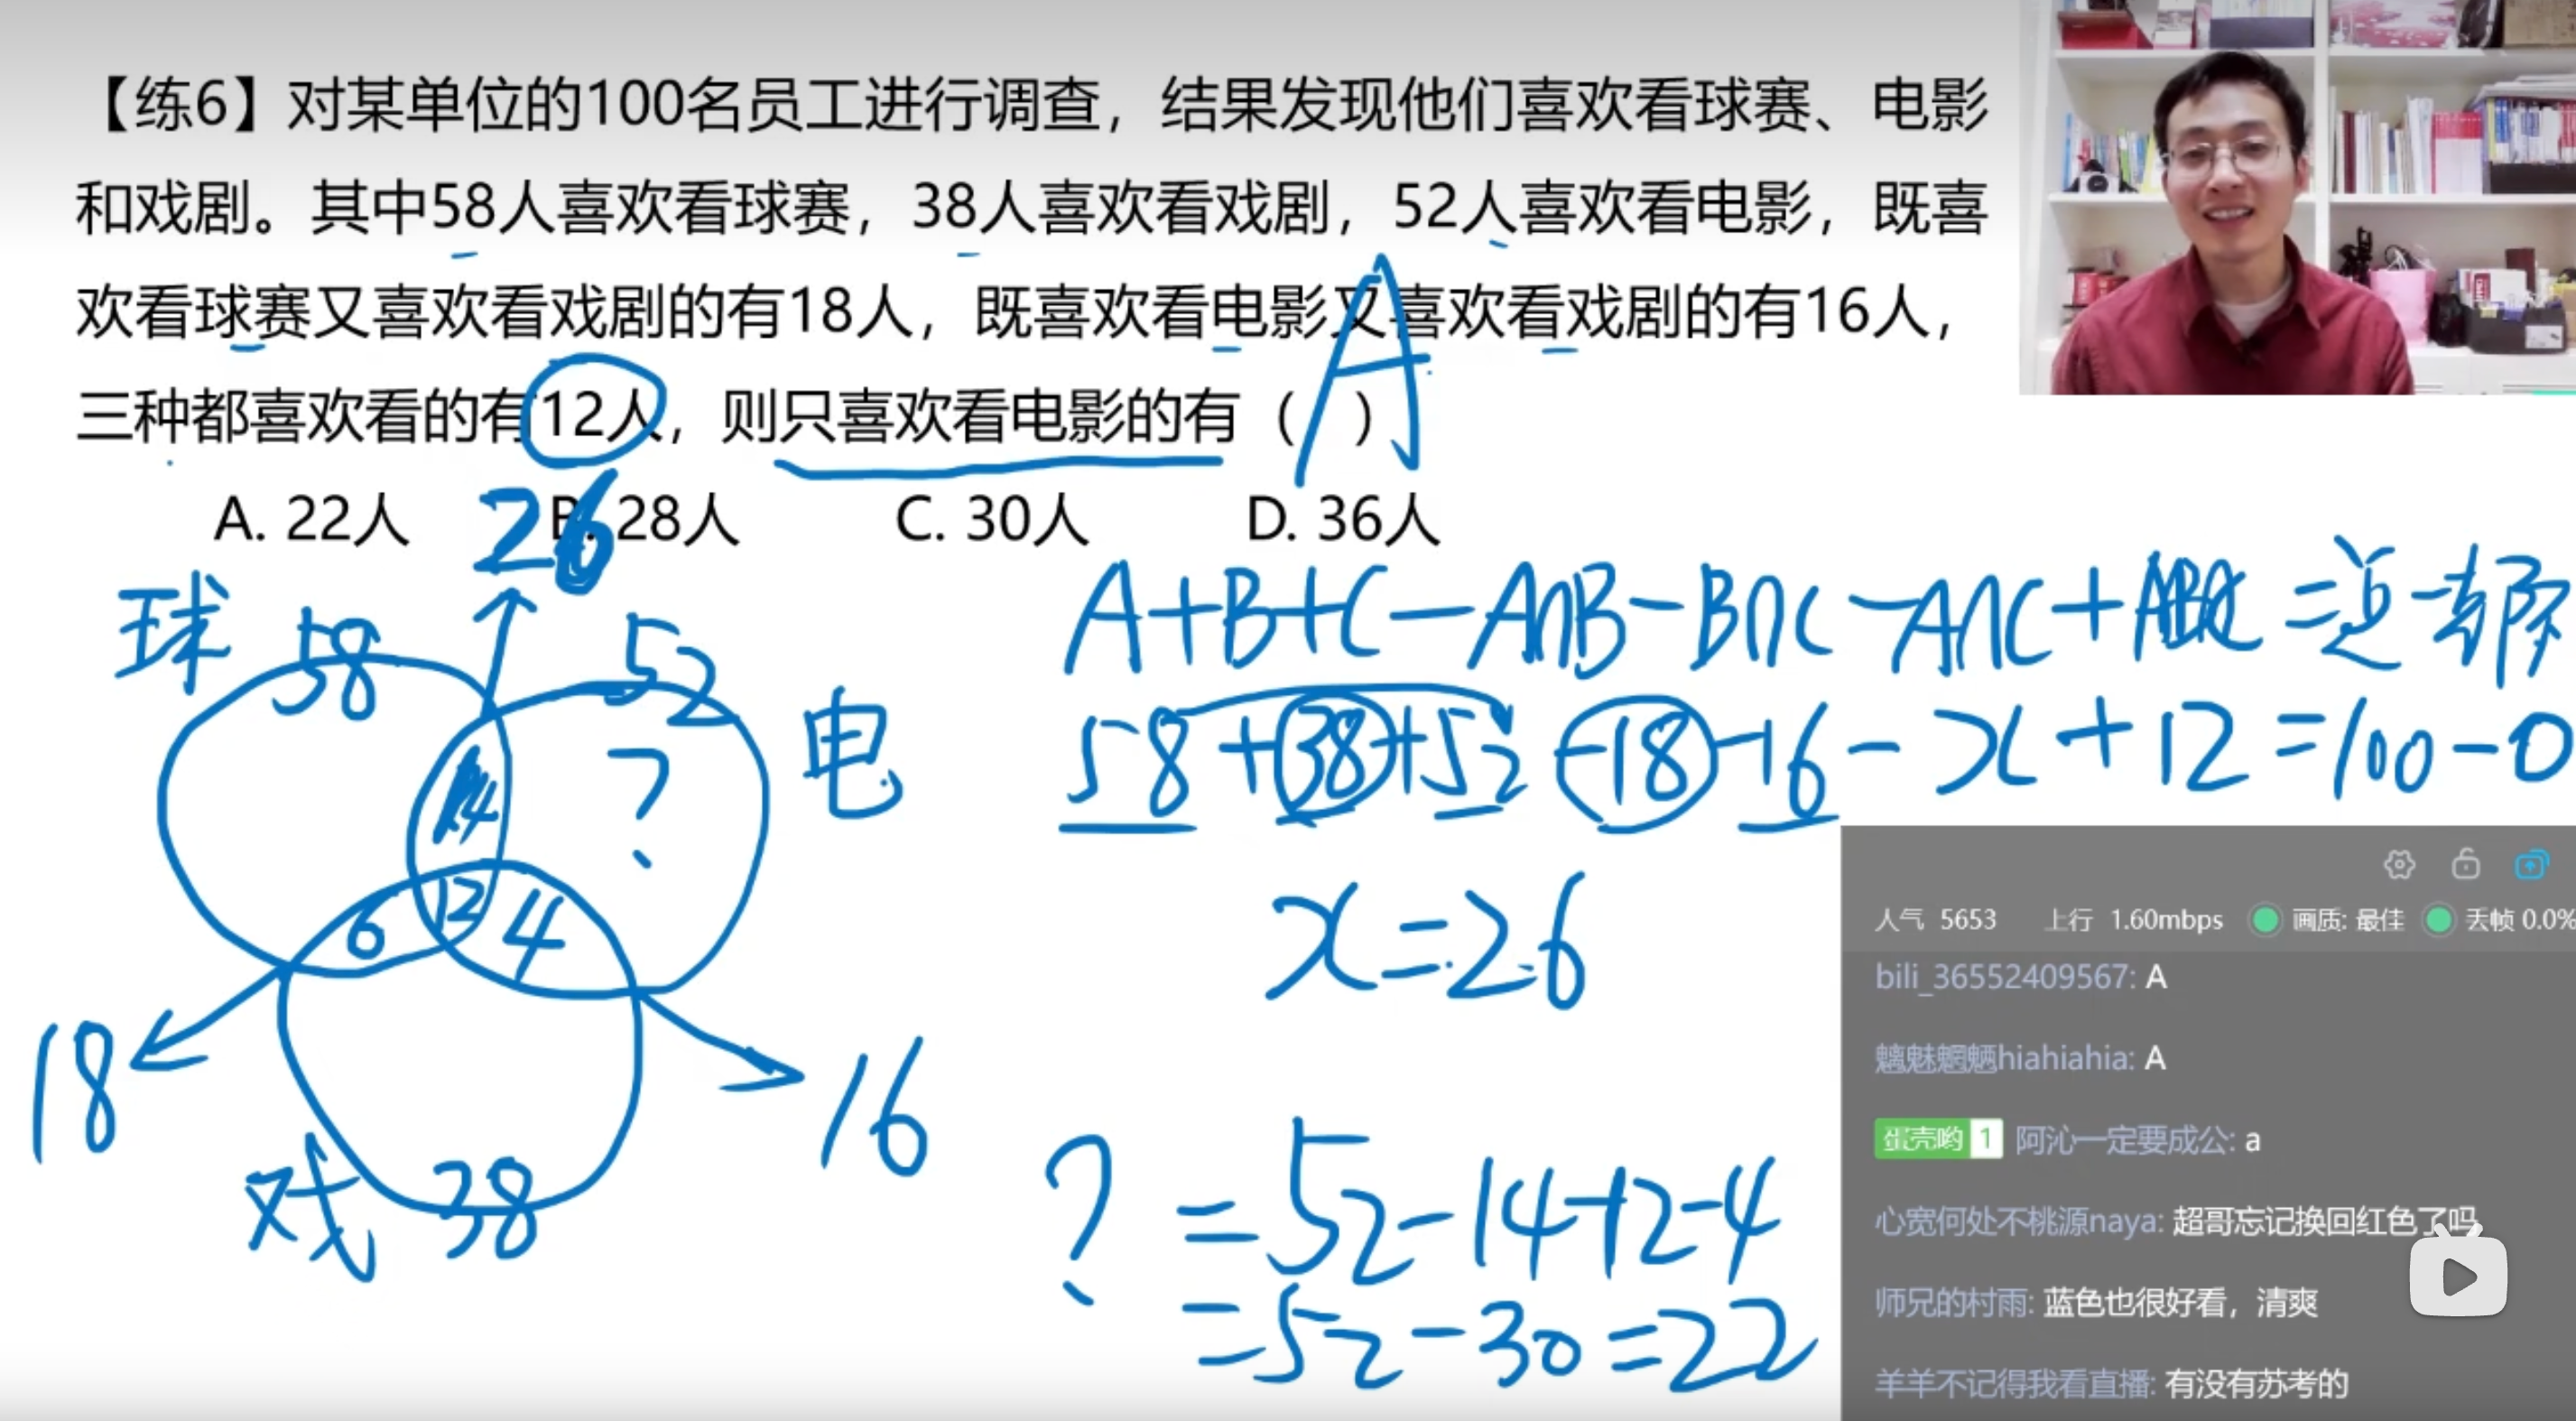 【练6】对某单位的100名员工进行调查，结果发现他们喜欢看球赛、电影
和戏剧。其中58人喜欢看球赛，38人喜欢看戏剧，52人喜欢看电影，既喜
欢看球赛又喜欢看戏剧的有18人，既喜欢看电影又喜欢看戏剧的有16人，
三种都喜欢看的有12人，则只喜欢看电影的有（ ）
A
A. 22人 B. 28人 C. 30人 D. 36人
26
球 58 52 电
14 ?
6 12 4
18 16
戏 38
A+B+C-A∩B-B∩C-A∩C+ABC=总-都不
58+38+52-18-16-x+12=100-0
x=26
?=52-14-12-4
=52-30=22
人气 5653 上行 1.60mbps 画质: 最佳 丢帧 0.0%
bili_36552409567: A
魑魅魍魉hiahiahia: A
蛋壳哟 1 阿沁一定要成公: a
心宽何处不桃源naya: 超哥忘记换回红色了吗
师兄的村雨: 蓝色也很好看，清爽
羊羊不记得我看直播: 有没有苏考的